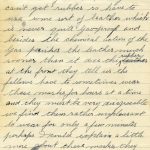 can't get rubber is have to
use some sort of leather which
is never quite Gasproof and
besides the chemical takes of the
Gas perishes the leather much
sooner than it are they rubber
at the front they tell us the
fellows have to sometimes wear
these masks for hours at a time
and they must be very disagreeable
we find them rather unpleasant
to wear for only a few minutes
perhaps I could explain a little
more about these masks they